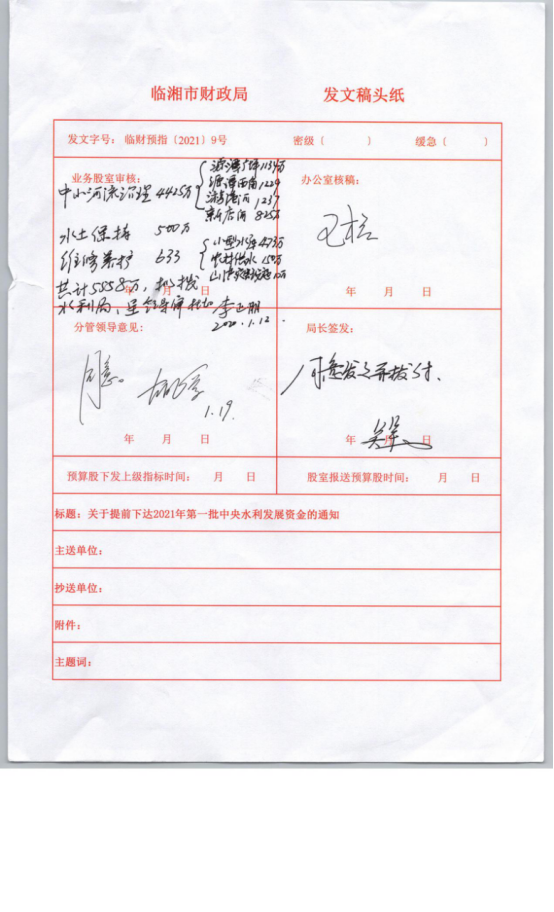 临湘市财政局 发文稿头纸
发文字号：临财预指〔2021〕9号 密级〔 〕 缓急〔 〕
业务股室审核：
中小河流治理 4425万
1229
1237
825万
水土保持 500万
维修养护 633
小型水库 473万
农村供水 150万
山洪灾害 10万
共计5558万，拟拨
水利局，呈领导审批 李正明
1.12.
年 月 日
办公室核稿：
年 月 日
分管领导意见：
同意。
1.19.
年 月 日
局长签发：
同意发文并拨付.
年 月 日
预算股下发上级指标时间： 月 日
股室报送预算股时间： 月 日
标题：关于提前下达2021年第一批中央水利发展资金的通知
主送单位：
抄送单位：
附件：
主题词：